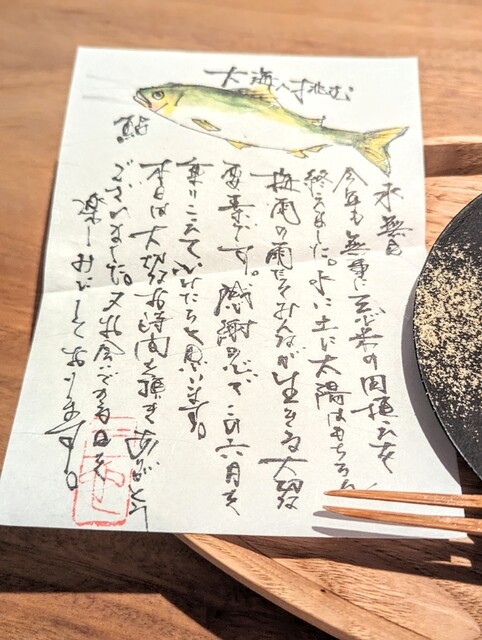 大海へ挑む
鮎
水無月
今年も無事に の田植えを
終えました。よい土に太陽はもちろん
梅雨の雨だってみんなが生きる大切な
要素です。感謝の心でこの六月を
乗りこえていけたらと思います。
本日は大切なお時間を頂きありがとう
ございました。又お会いできる日を
楽しみにしております。